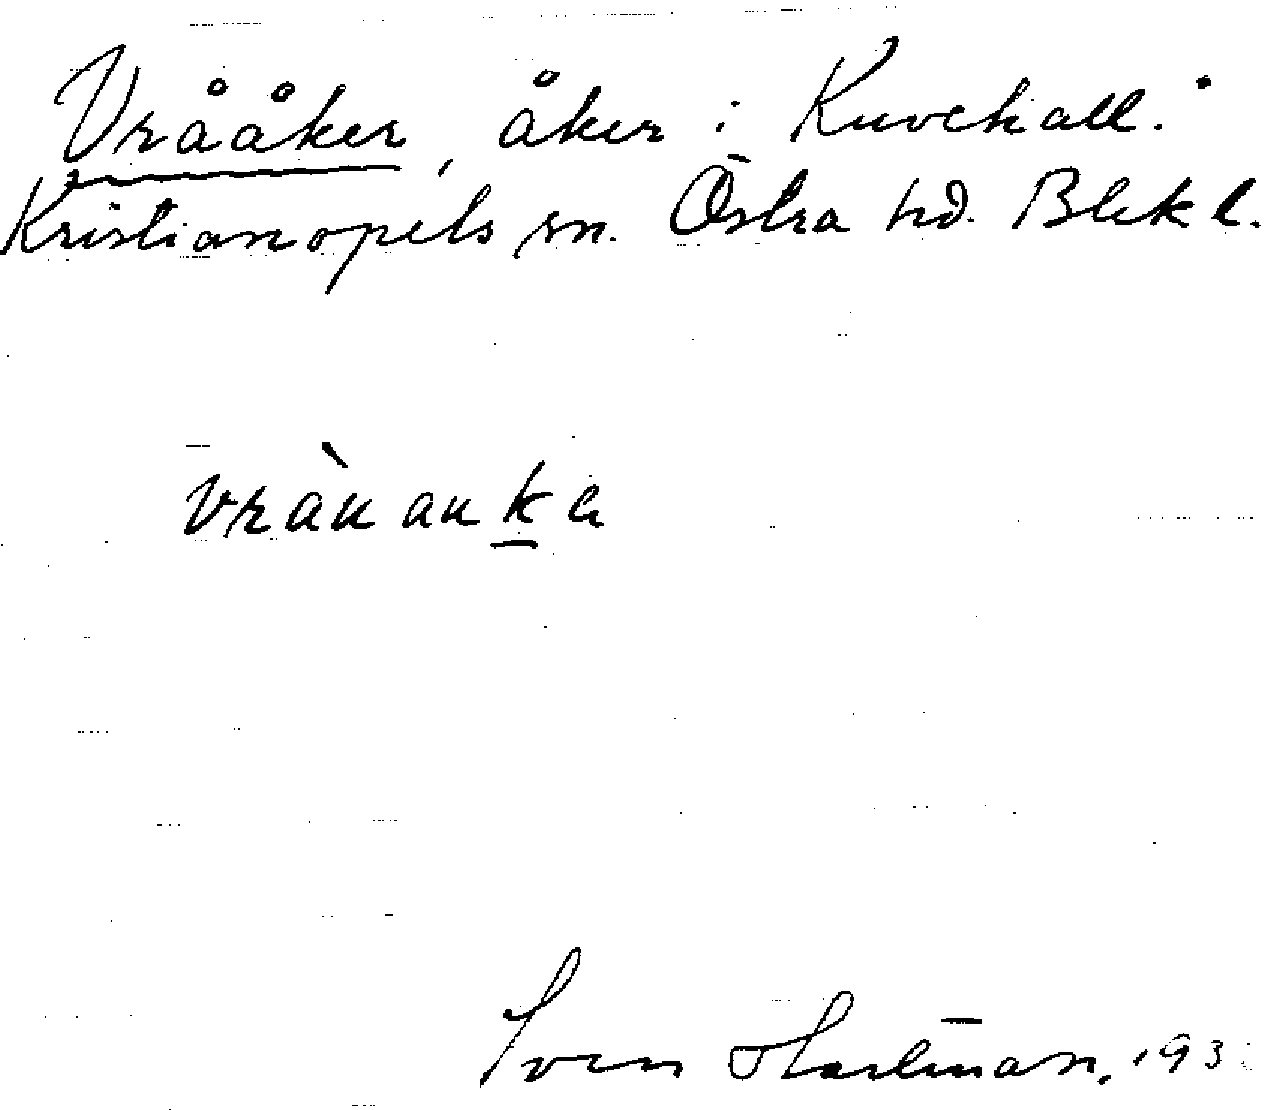 Vrååker, åker i Kuvehall.
Kristianopels sn. Östra hd. Blek l.
vràu au k
Sven Hartman, 193